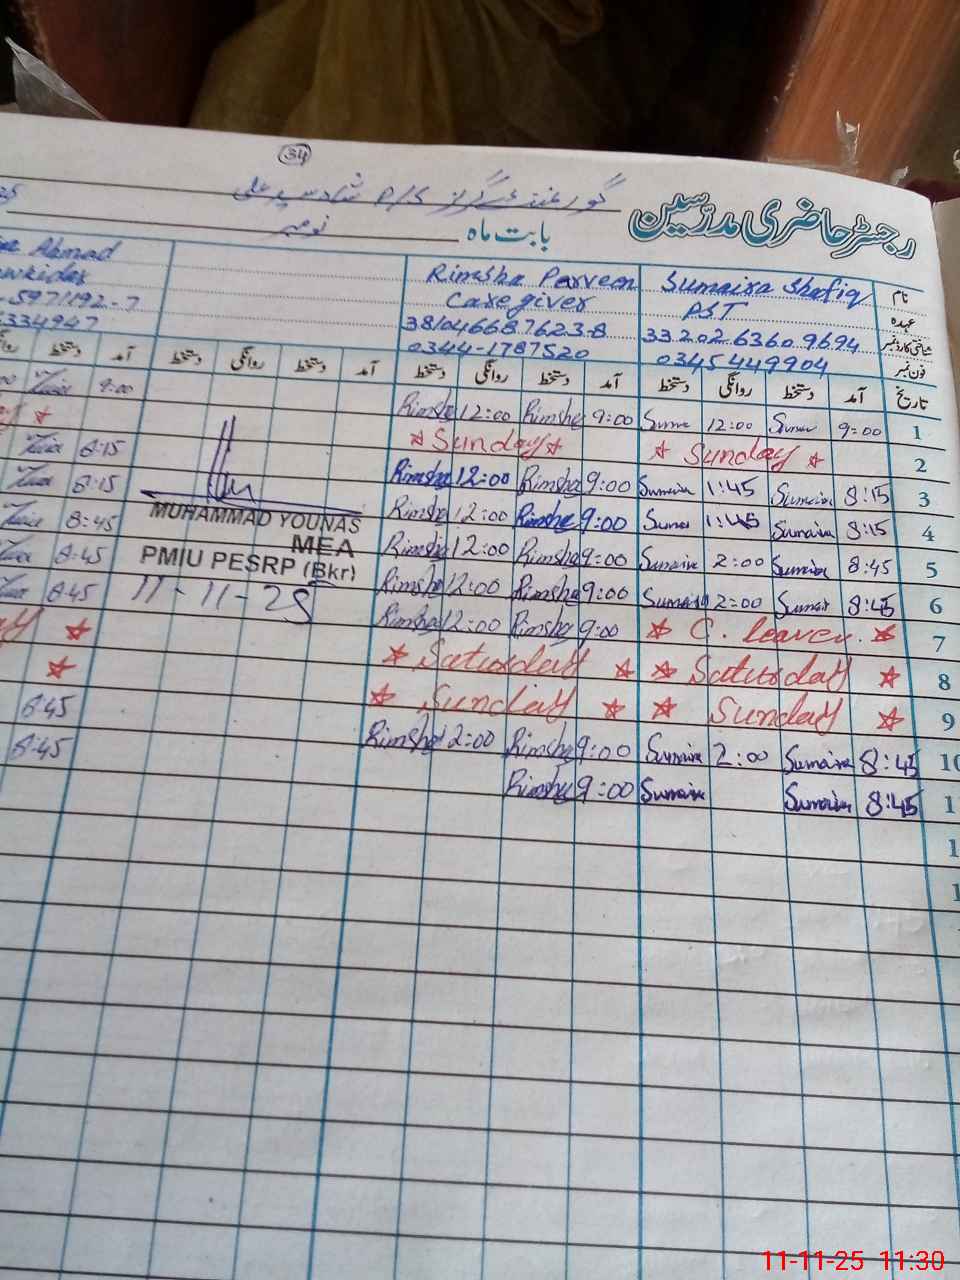 34
رجسٹر حاضری مدرسین گورنمنٹ گرلز P/S
بابت ماہ نومبر
نام Sumaira Shafiq Rimsha Parveen Ahmad
عہدہ PST Caregiver
شناختی کارڈ نمبر 33202 6360 9694 38104668 7623-8 5971192-7
فون نمبر 0345449904 0344-1787520 334947
تاریخ آمد دستخط روانگی دستخط آمد دستخط روانگی دستخط آمد دستخط روانگی دستخط آمد دستخط
1 9:00 12:00 9:00 Rimsha 12:00 Rimsha 9:00
2 ★ Sunday ★ ★ Sunday ★ ★
3 8:15 Sumaira 1:45 Sumaira 9:00 Rimsha 12:00 Rimsha 8:15
4 8:15 Sumaira 1:45 9:00 Rimsha 12:00 Rimsha 8:15
5 8:45 Sumaira 2:00 Sumaira 9:00 Rimsha 12:00 Rimsha 8:45
6 8:45 2:00 Sumaira 9:00 Rimsha 12:00 Rimsha 8:45
7 ★ C. leave ★ 9:00 Rimsha 12:00 Rimsha 8:45
8 ★ Saturday ★ ★ Saturday ★ ★
9 ★ Sunday ★ ★ Sunday ★ ★
10 8:45 Sumaira 2:00 Sumaira 9:00 Rimsha 2:00 Rimsha 8:45
11 8:45 Sumaira Sumaira 9:00 Rimsha 8:45
MUHAMMAD YOUNAS
MEA
PMIU PESRP (Bkr)
11-11-25
11-11-25 11:30